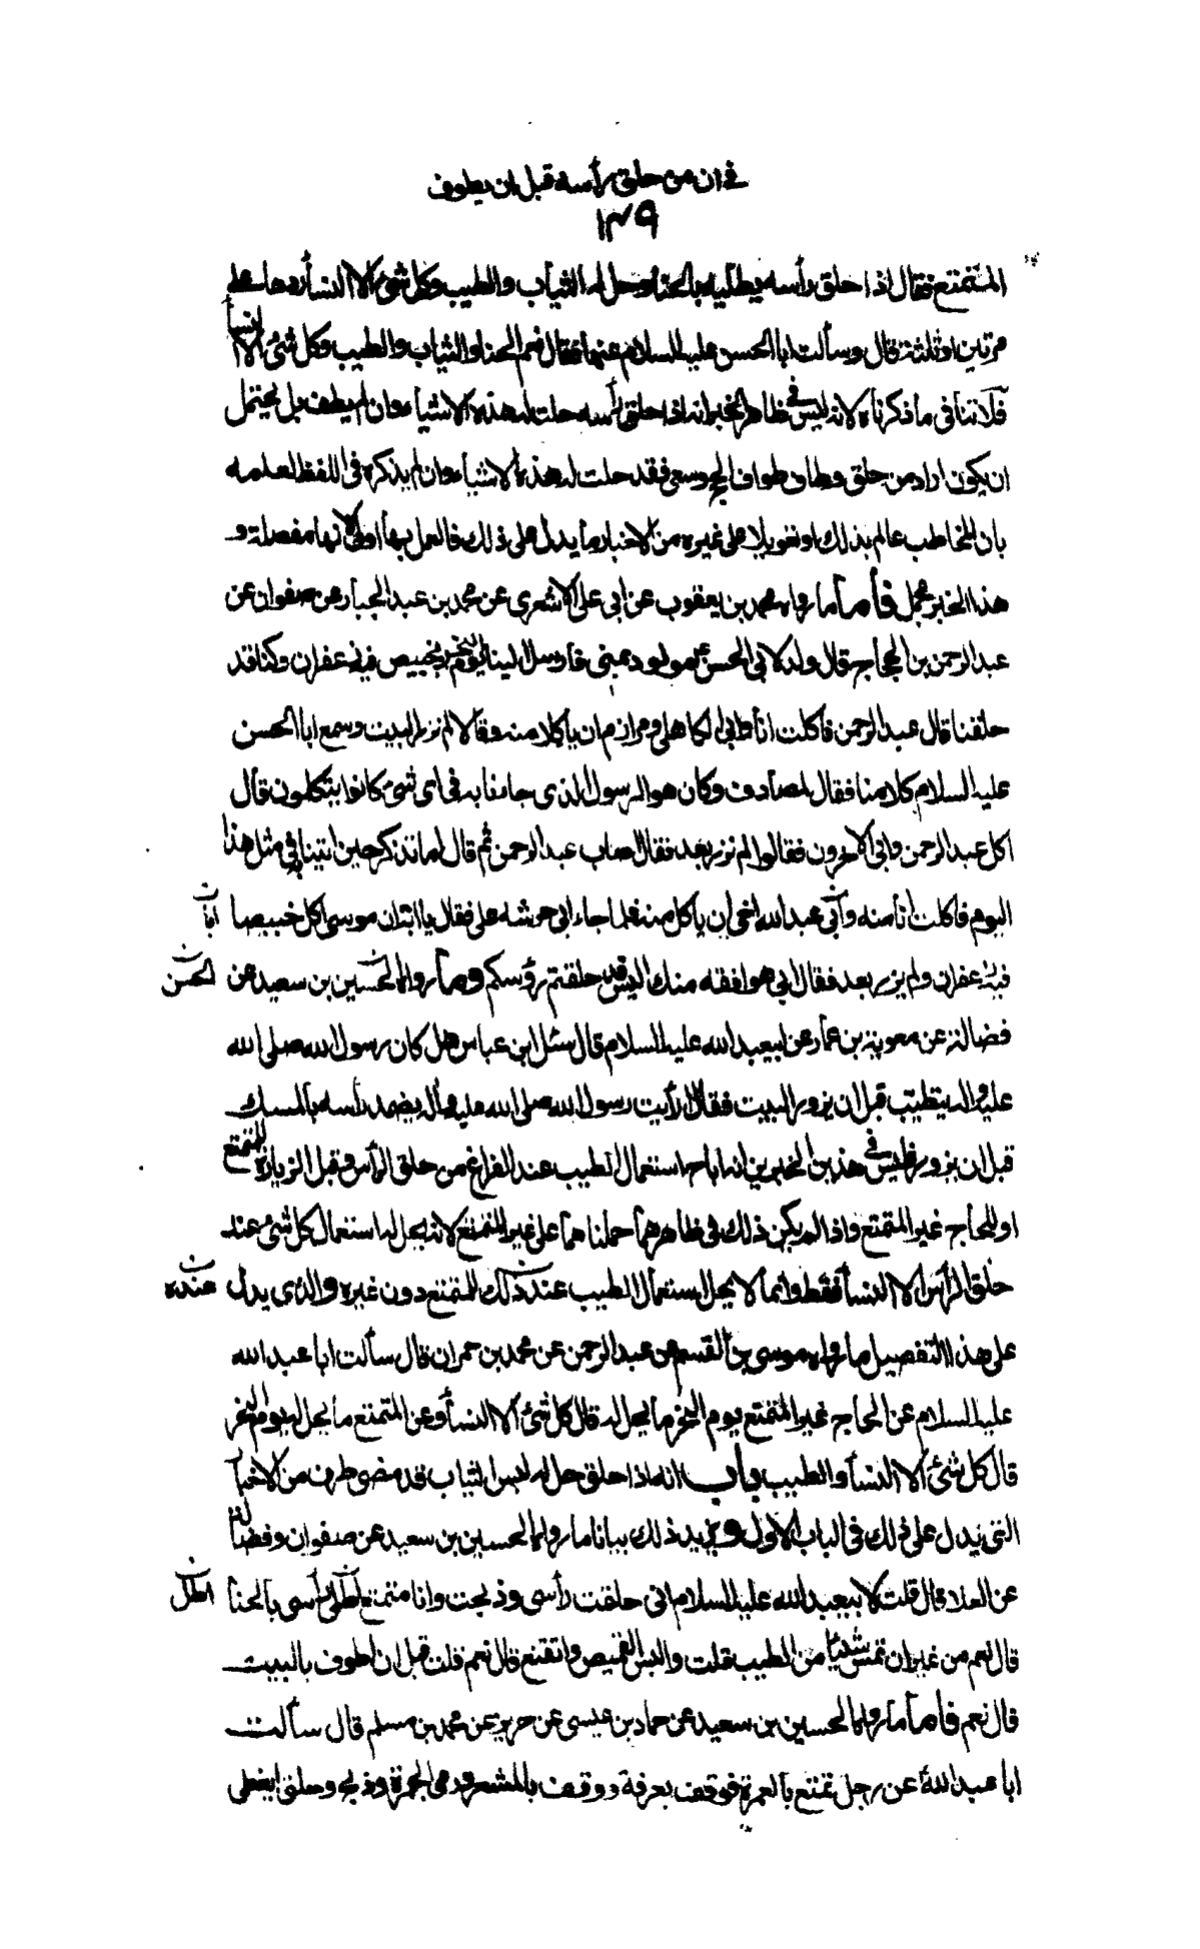 في ان من حلق رأسه قبل ان يطوف
١٣٩
المتمتع فقال اذا حلق رأسه يطليه بالحنا وحل له الثياب والطيب وكل شئ الا النسأ رددها على
مرتين او ثلثة قال وسألت ابا الحسن عليه السلام عنها فقال نعم الحنا والثياب والطيب وكل شئ الا النسأ
فلا تنافى ما ذكرناه لانه ليس في ظاهر الخبر انه اذا حلق رأسه حلت له هذه الاشياء وان لم يطف بل يحتمل
ان يكون اراد من حلق وطاف طواف الحج وسعى فقد حلت له هذه الاشياء وان لم يذكره في اللفظ لعلمه
بان المخاطب عالم بذلك او تعويلا على غيره من الاخبار ما يدل على ذلك فالعمل بها اولى لانها مفصلة و
هذا الخبر مجمل فأما ما رواه محمد بن يعقوب عن ابى على الاشعرى عن محمد بن عبد الجبار عن صفوان عن
عبد الرحمن بن الحجاج قال ولد لابى الحسن ع مولود بمنى فارسل الينا يوم النحر بخبيص فيه زعفران وكنا قد
حلقنا قال عبد الرحمن فاكلت انا وابى الكاهلى ومرازم ان ياكلا منه وقالا لم نزر البيت وسمع ابا الحسن
عليه السلام كلامنا فقال لمصادف وكان هو الرسول الذى جاءنا به في اى شئ كانوا يتكلمون قال
اكل عبد الرحمن وابى الاخرون فقالوا لم نزر بعد فقال اصاب عبد الرحمن ثم قال اما تذكر حين اتينا في مثل هذا
اليوم فاكلت انا منه وأبى عبد الله اخى ان ياكل منه فلما جاء ابى حرشه على فقال يا ابة ان موسى اكل خبيصا
فيه زعفران ولم يزر بعد فقال ابى هو افقه منك اليس قد حلقتم رؤسكم وما رواه الحسين بن سعيد عن
الحسن
فضالة عن معوية بن عمار عن ابيعبد الله عليه السلام قال سئل ابن عباس هل كان رسول الله صلى الله
عليه واله يتطيب قبل ان يزور البيت فقال رأيت رسول الله صلى الله عليه واله يضمد رأسه بالمسك
قبل ان يزور فليس في هذين الخبرين انه اباح استعمال الطيب عند الفراغ من حلق الرأس وقبل الزيارة للمتمتع
او للحاج غير المتمتع واذا لم يكن ذلك في ظاهرهما حملناهما على غير المتمتع لانه يحل له استعمال كل شئ عند
حلق الرأس الا النسأ فقط وانما لا يحل استعمال الطيب عند ذلك للمتمتع دون غيره والذى يدل
عنده
على هذا التفصيل ما رواه موسى بن القسم عن عبد الرحمن عن محمد بن حمران قال سألت ابا عبد الله
عليه السلام عن الحاج غير المتمتع يوم النحر ما يحل له قال كل شئ الا النسأ وعن المتمتع ما يحل له يوم النحر
قال كل شئ الا النسأ والطيب باب انه اذا حلق حل له لبس الثياب قد مضى طرف من الاخبار
التى يدل على ذلك في الباب الاول ويزيد ذلك بيانا ما رواه الحسين بن سعيد عن صفوان وفضالة
عن العلا قال قلت لابيعبد الله عليه السلام انى حلقت رأسى وذبحت وانا متمتع اطلى رأسى بالحنأ
قال نعم من غير ان تمس شيئا من الطيب قلت والبس القميص واتقنع قال نعم قلت قبل ان اطوف بالبيت
قال نعم فأما ما رواه الحسين بن سعيد عن حماد بن عيسى عن حريز عن محمد بن مسلم قال سألت
ابا عبد الله عن رجل تمتع بالعمرة فوقف بعرفة ووقف بالمشعر ورمى الجمرة وذبح وحلق ايغطى